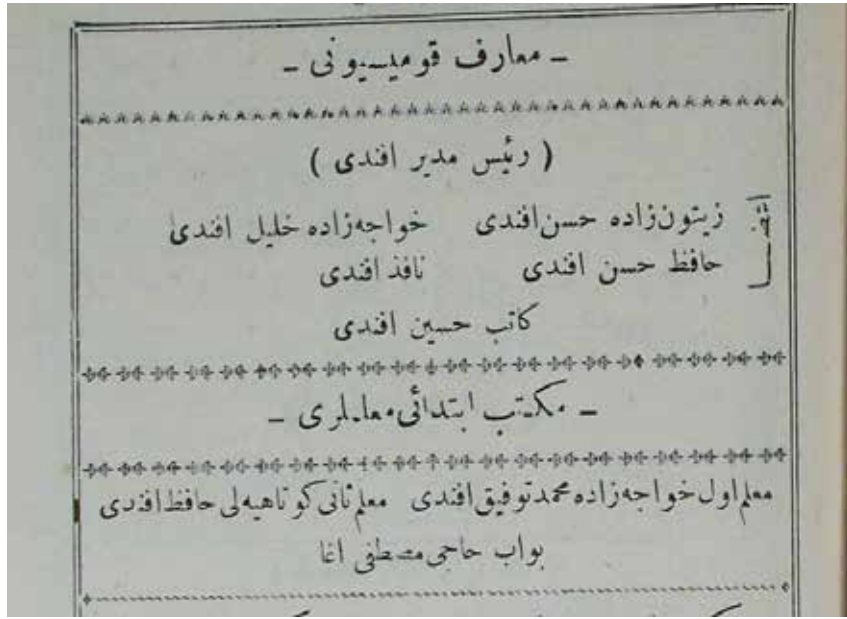 ـ معارف قومیسیونی ـ
( رئیس مدیر افندی )
زیتون‌زاده حسن افندی خواجه‌زاده خلیل افندی
حافظ حسن افندی نافذ افندی
کاتب حسین افندی
ـ مکتب ابتدائی معلملری ـ
معلم اول خواجه‌زاده محمد توفیق افندی معلم ثانی کوتاهیه‌لی حافظ افندی
بواب حاجی مصطفی اغا